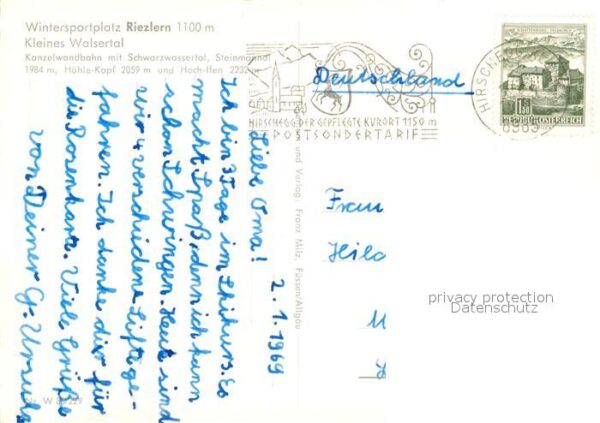 Wintersportplatz Riezlern 1100 m
Kleines Walsertal
Kanzelwandbahn mit Schwarzwassertal, Steinmandl
1984 m, Hühle-Kopf 2059 m und Hoch-Ifen 2232 m
HIRSCHEGG DER GEPFLEGTE KURORT 1150 m
POSTSONDERTARIF
HIRSCHE
6985
1.80
REPUBLIK ÖSTERREICH
Deutschland
2.1.1969
Liebe Oma!
Ich bin 3 Tage im Skikurs. Es
macht Spaß, denn ich kann
schon Schwingen. Heute sind
wir 4 verschiedene Lifte ge-
fahren. Ich danke dir für
die Rosenkarte. Viele Grüße
von Deiner G. Ursula
Frau
Hila
M
und Verlag: Franz Milz, Füssen/Allgäu
privacy protection
Datenschutz
Nr. W